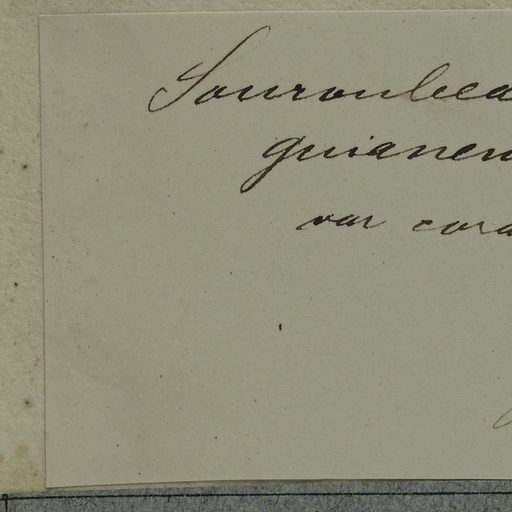 Souroubea
guianen
var cora